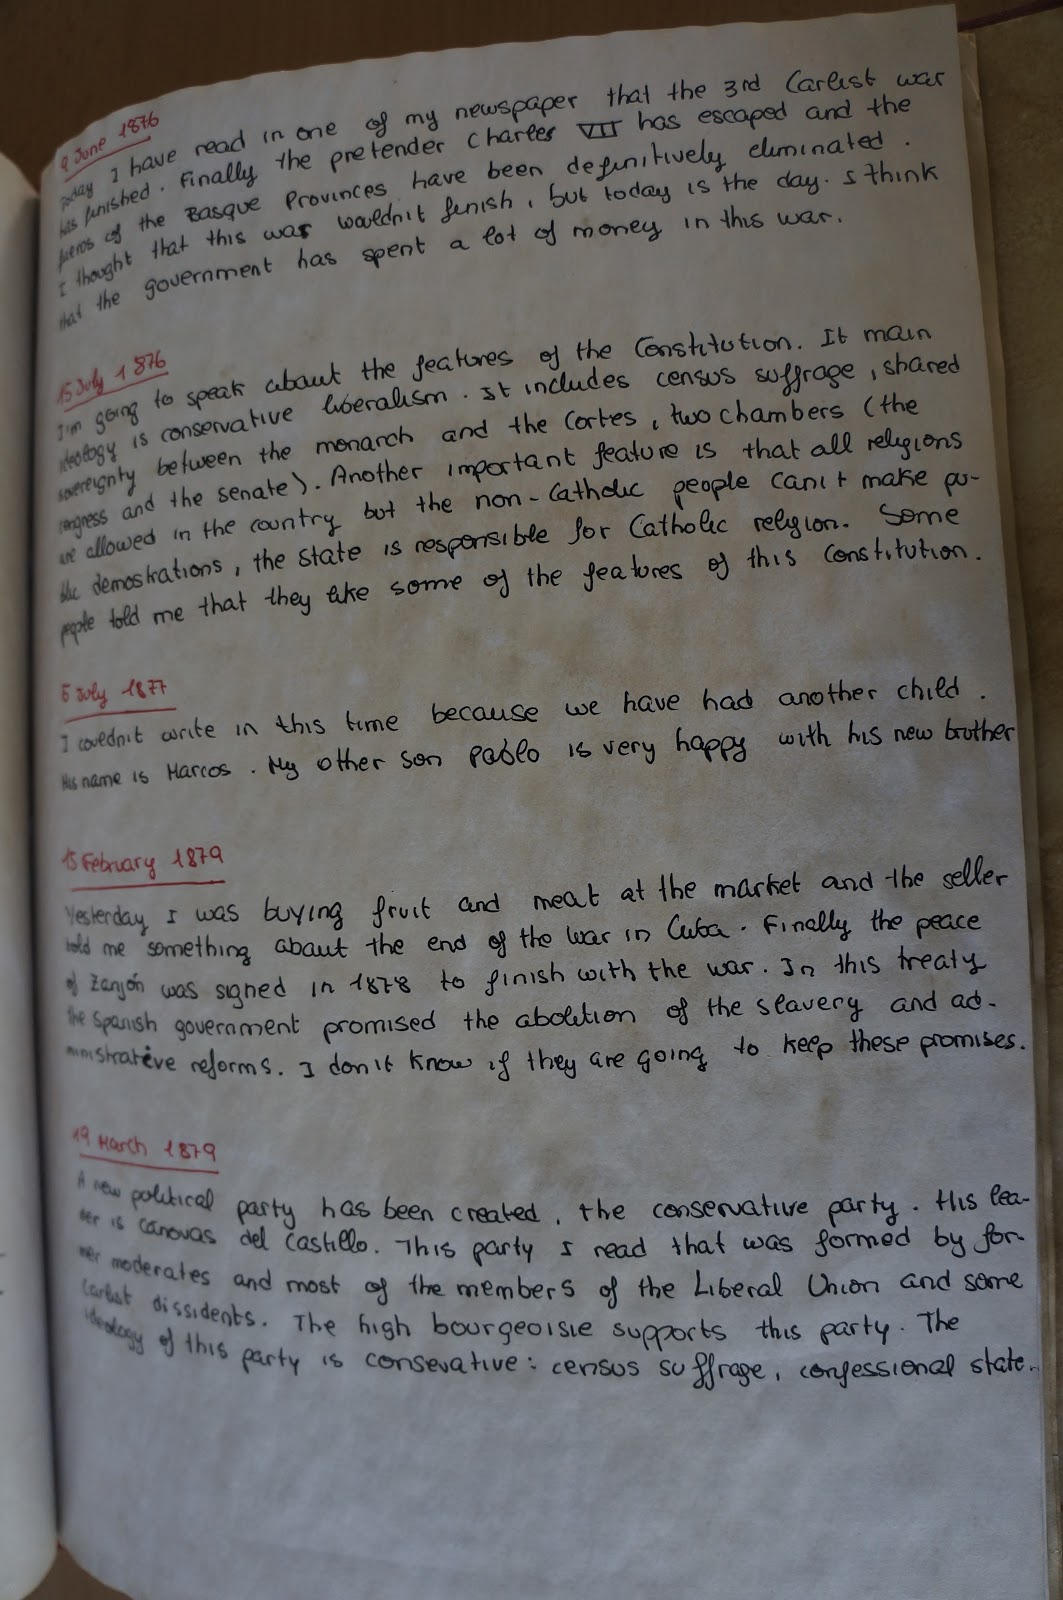 9 June 1876
Today I have read in one of my newspaper that the 3rd Carlist war
has finished. Finally the pretender Charles VII has escaped and the
fueros of the Basque Provinces have been definitively eliminated.
I thought that this war wouldn't finish, but today is the day. I think
that the government has spent a lot of money in this war.
15 July 1876
I'm going to speak about the features of the Constitution. It main
ideology is conservative liberalism. It includes census suffrage, shared
sovereignty between the monarch and the Cortes, two chambers (the
congress and the senate). Another important feature is that all religions
are allowed in the country but the non-Catholic people can't make pu-
blic demostrations, the state is responsible for Catholic religion. Some
people told me that they like some of the features of this Constitution.
5 July 1877
I couldn't write in this time because we have had another child.
His name is Marcos. My other son Pablo is very happy with his new brother
15 February 1879
Yesterday I was buying fruit and meat at the market and the seller
told me something about the end of the war in Cuba. Finally the peace
of Zanjón was signed in 1878 to finish with the war. In this treaty
the Spanish government promised the abolition of the slavery and ad-
ministrative reforms. I don't know if they are going to keep these promises.
19 March 1879
A new political party has been created, the conservative party. His lea-
der is Cánovas del Castillo. This party I read that was formed by for-
mer moderates and most of the members of the Liberal Union and some
Carlist dissidents. The high bourgeoisie supports this party. The
ideology of this party is consevative: census suffrage, confessional state.